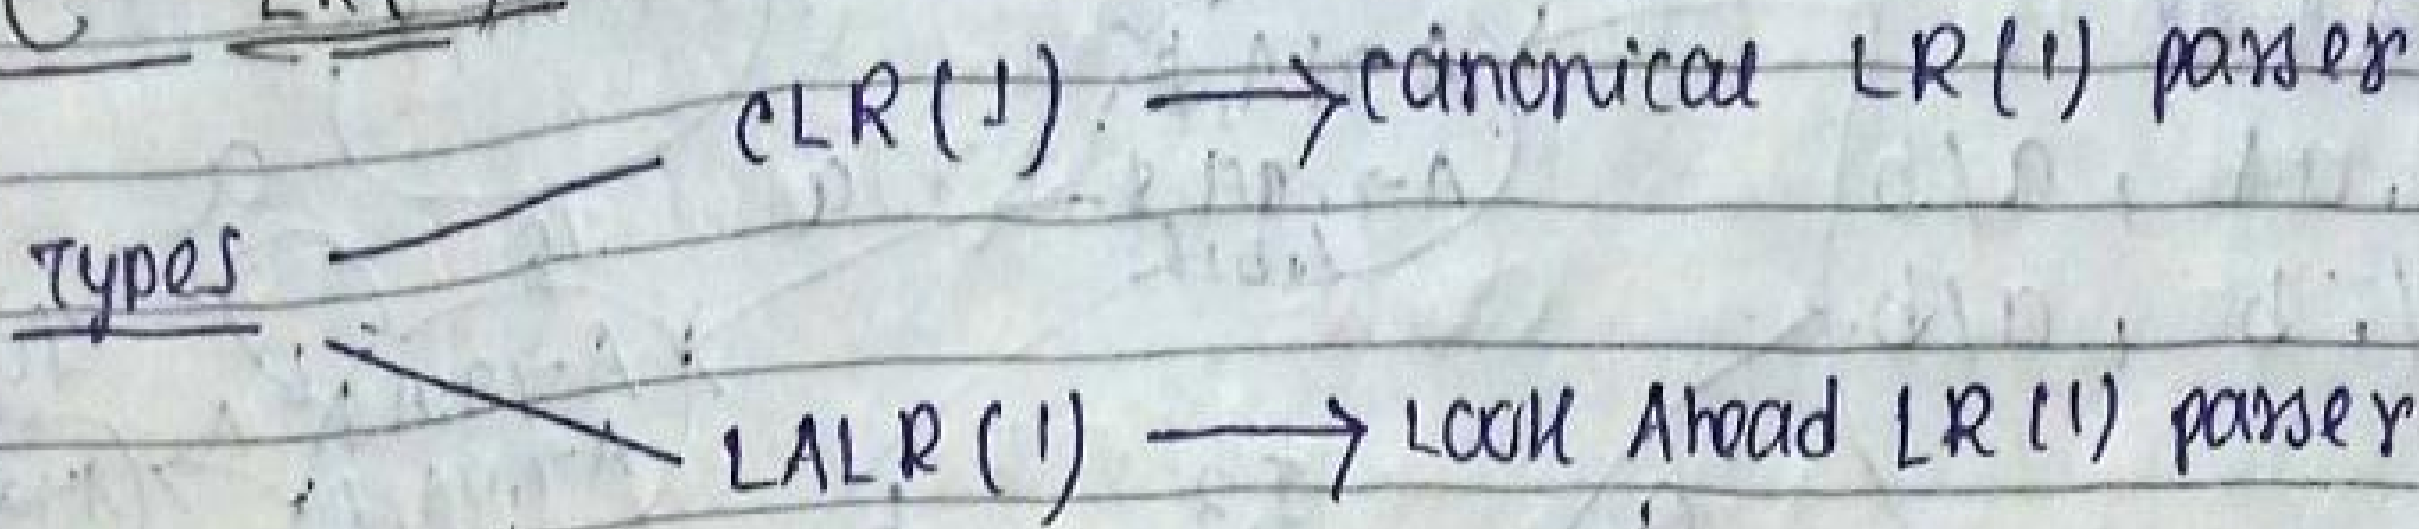 LR(1)
CLR(1) → canonical LR(1) parser
Types
LALR(1) → Look Ahead LR(1) parser